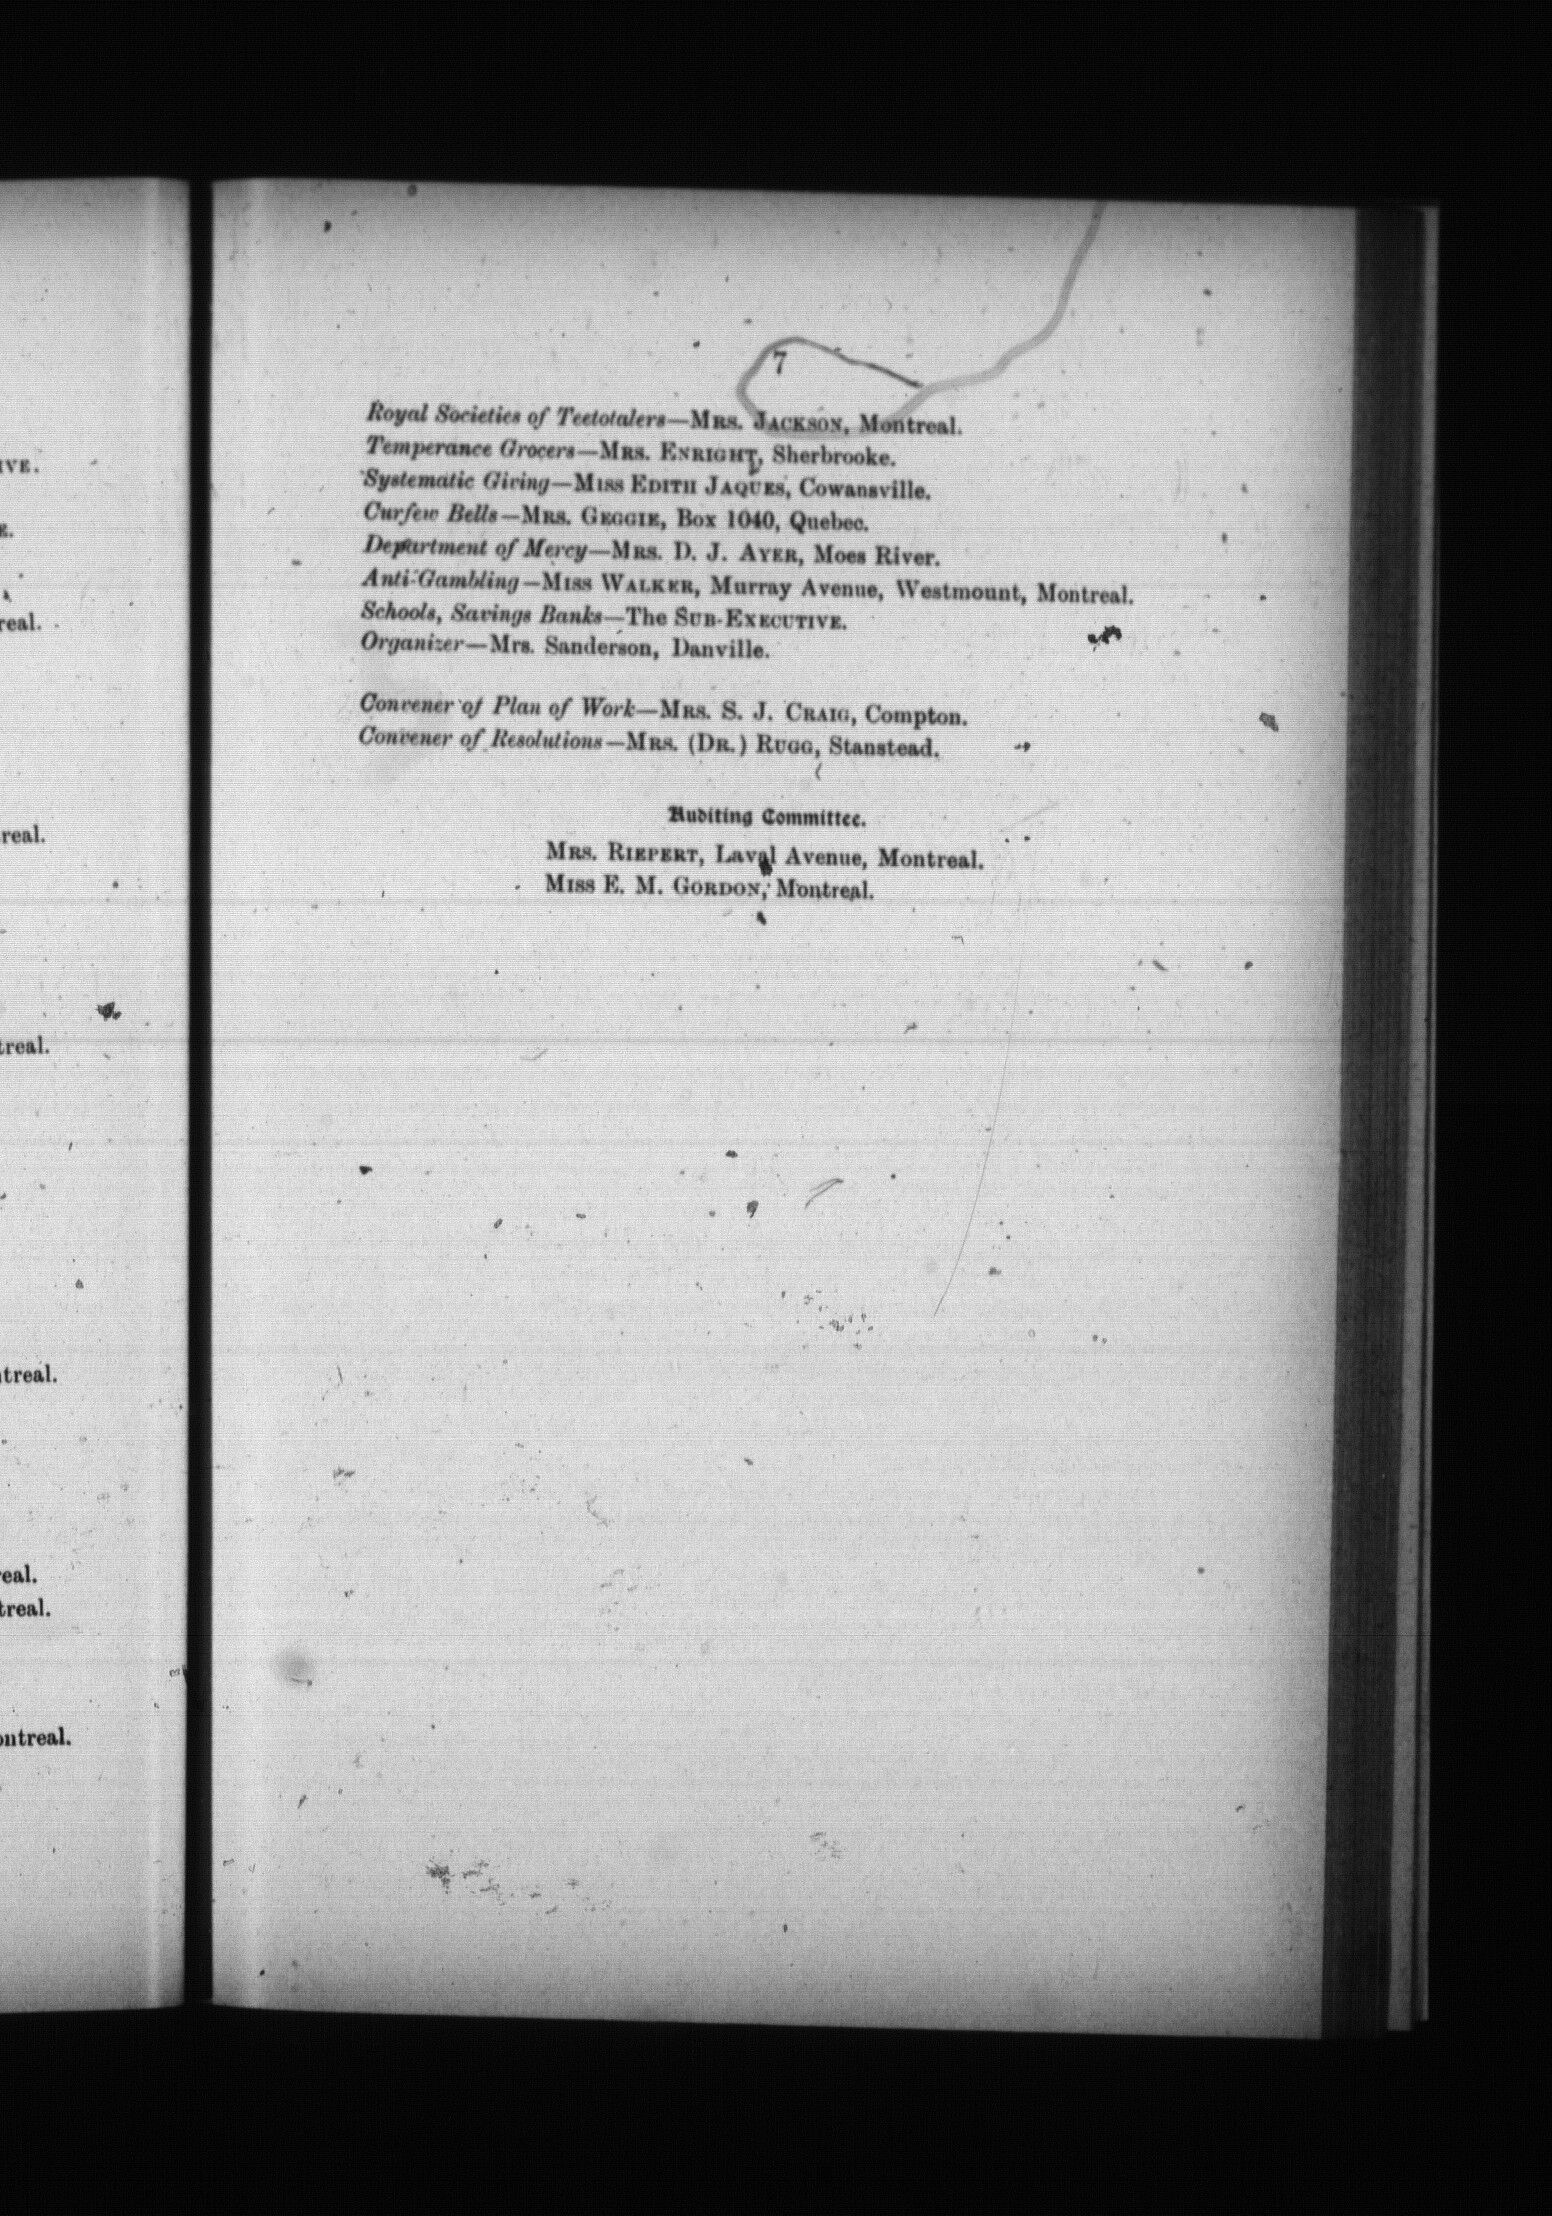 7
Royal Societies of Teetotalers—MRS. JACKSON, Montreal.
Temperance Grocers—MRS. ENRIGHT, Sherbrooke.
Systematic Giving—MISS EDITH JAQUES, Cowansville.
Curfew Bells—MRS. GEGGIE, Box 1040, Quebec.
Department of Mercy—MRS. D. J. AYER, Moes River.
Anti-Gambling—MISS WALKER, Murray Avenue, Westmount, Montreal.
Schools, Savings Banks—The SUB-EXECUTIVE.
Organizer—Mrs. Sanderson, Danville.
Convener of Plan of Work—MRS. S. J. CRAIG, Compton.
Convener of Resolutions—MRS. (DR.) RUGG, Stanstead.
Auditing Committee.
MRS. RIEPERT, Laval Avenue, Montreal.
MISS E. M. GORDON, Montreal.